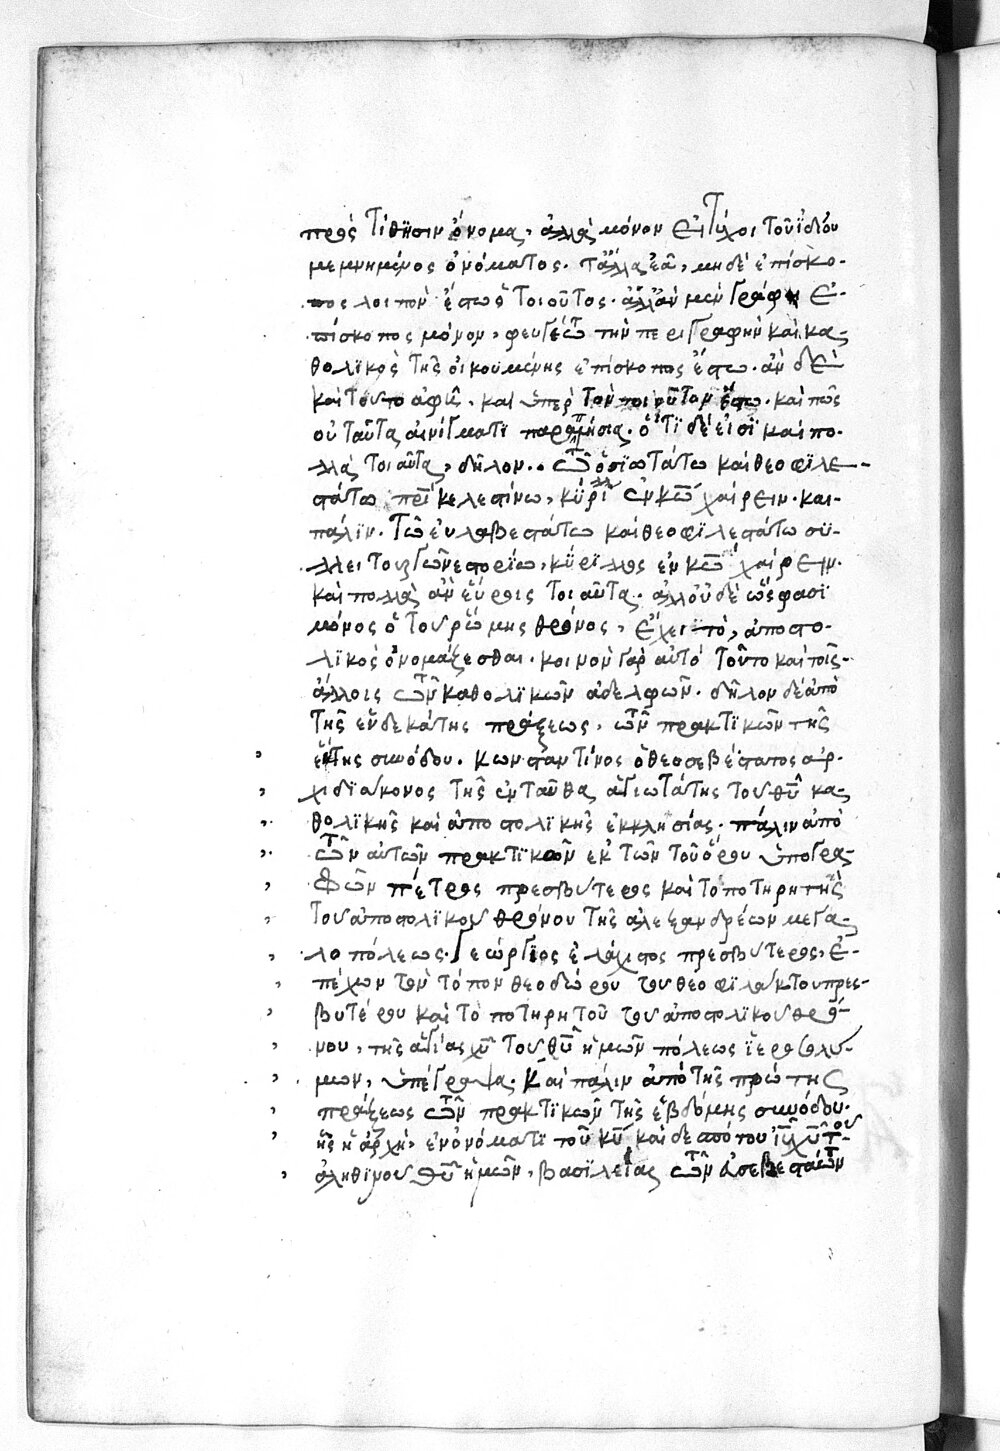 πρὸς τίθησιν ὄνομα, ἀλλὰ μόνον εἰ τύχοι τοῦ ἰδίου
μεμνημένος ὀνόματος. τἄλλα ἐᾷ, μηδὲ ἐπίσκο-
πος λοιπὸν ἔστω ὁ τοιοῦτος. ἀλλ' ἂν μὲν γράφῃ ἐ-
πίσκοπος μόνον, φευγέτω τὴν περιγραφὴν καὶ κα-
θολικὸς τῆς οἰκουμένης ἐπίσκοπος ἔστω. ἂν δὲ
καὶ τοῦτο ἀφῇ, καὶ ὑπὲρ τὸν τοιοῦτον ἔστω. καὶ πῶς
οὐ ταῦτα αἰνίγματι παραπλήσια. ὅτι δέ εἰσι καὶ πο-
λλὰ τοιαῦτα, δῆλον. τῷ ὁσιωτάτω καὶ θεοφιλε-
στάτω πρὶ κελεστίνω, κύριλλ ἐν κῶ χαίρειν. καὶ
πάλιν. τῶ εὐλαβεστάτω καὶ θεοφιλεστάτω συ-
λλειτουργῶ νεστορίω, κύριλλος ἐν κῶ χαίρειν.
καὶ πολλὰ ἂν εὕροις τοιαῦτα. ἀλλ' οὐδὲ ὥς φασι
μόνος ὁ τοῦ ῥώμης θρόνος, ἔχει τὸ, ἀποστο-
λικὸς ὀνομάζεσθαι. κοινὸν γὰρ αὐτὸ τοῦτο καὶ τοῖς
ἄλλοις τῶν καθολικῶν ἀδελφῶν. δῆλον δὲ ἀπὸ
τῆς ἑνδεκάτης πράξεως, τῶν πρακτικῶν τῆς
ἕκτης συνόδου. κωνσταντῖνος ὁ θεοσεβέστατος ἀρ-
χιδιάκονος τῆς ἐνταῦθα ἁγιωτάτης τοῦ θῦ κα-
θολικῆς καὶ ἀποστολικῆς ἐκκλησίας. πάλιν ἀπὸ
τῶν αὐτῶν πρακτικῶν ἐκ τῶν τοῦ ὅρου ὑπογρα-
φῶν πέτρος πρεσβύτερος καὶ τοποτηρητὴς
τοῦ ἀποστολικοῦ θρόνου τῆς ἀλεξανδρέων μεγα-
λοπόλεως. γεώργιος ἐλάχιστος πρεσβύτερος, ἐ-
πέχων τὸν τόπον θεοδώρου τοῦ θεοφιλάκτου πρεσ-
βυτέρου καὶ τοποτηρητοῦ τοῦ ἀποστολικοῦ θρό-
νου, τῆς ἁγίας χῦ τοῦ θῦ ἡμῶν πόλεως ἱεροσολύ-
μων, ὑπέγραψα. καὶ πάλιν ἀπὸ τῆς πρώτης
πράξεως τῶν πρακτικῶν τῆς ἑβδόμης συνόδου.
ἧς ἡ ἀρχὴ, ἐν ὀνόματι τοῦ κῦ καὶ δεσπότου ἰῦ χῦ τοῦ
ἀληθινοῦ θῦ ἡμῶν, βασιλείας τῶν εὐσεβεστάτων